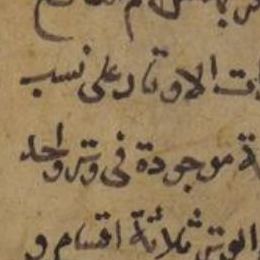 ات الاوتار على نسب
ة موجودة فى وتر واحد
الوتر ثلاثة اقسام و